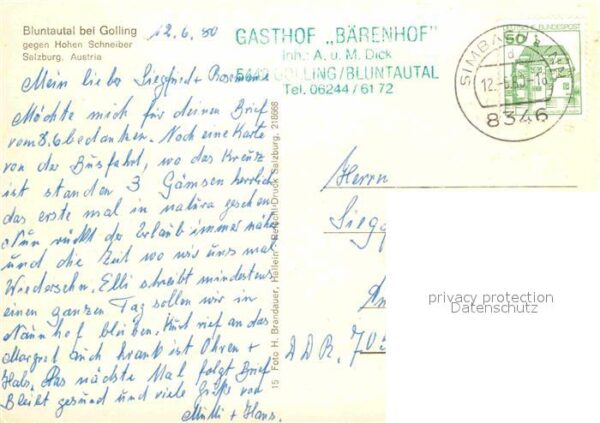 Bluntautal bei Golling
gegen Hohen Schneiber
Salzburg, Austria
12.6.80
GASTHOF „BÄRENHOF"
Inh.: A. u. M. Dick
5440 GOLLING/BLUNTAUTAL
Tel. 06244 / 61 72
SIMBACH
12.-6.80-18
8346
50
DEUTSCHE BUNDESPOST
Mein lieber Siegfried + Rosemarie
Möchte mich für deinen Brief
vom 8.6 bedanken. Noch eine Karte
von der Busfahrt, wo das Kreutz
ist standen 3 Gämsen herrlich
das erste mal in natura gesehen
Nun rückt der Urlaub immer näher
und die Zeit wo wir uns mal
Wiedersehn. Elli schreibt mindestens
einen ganzen Tag sollen wir in
Naunhof bleiben. Kurt rief an das
Margret auch krank ist Ohren +
Hals. Das nächste Mal folgt Brief
Bleibt gesund und viele Grüße von
Mutti + Hans.
15 Foto H. Brandauer, Hallein Druck Salzburg, 218668
Herrn
Sieg
DDR. 705
privacy protection
Datenschutz